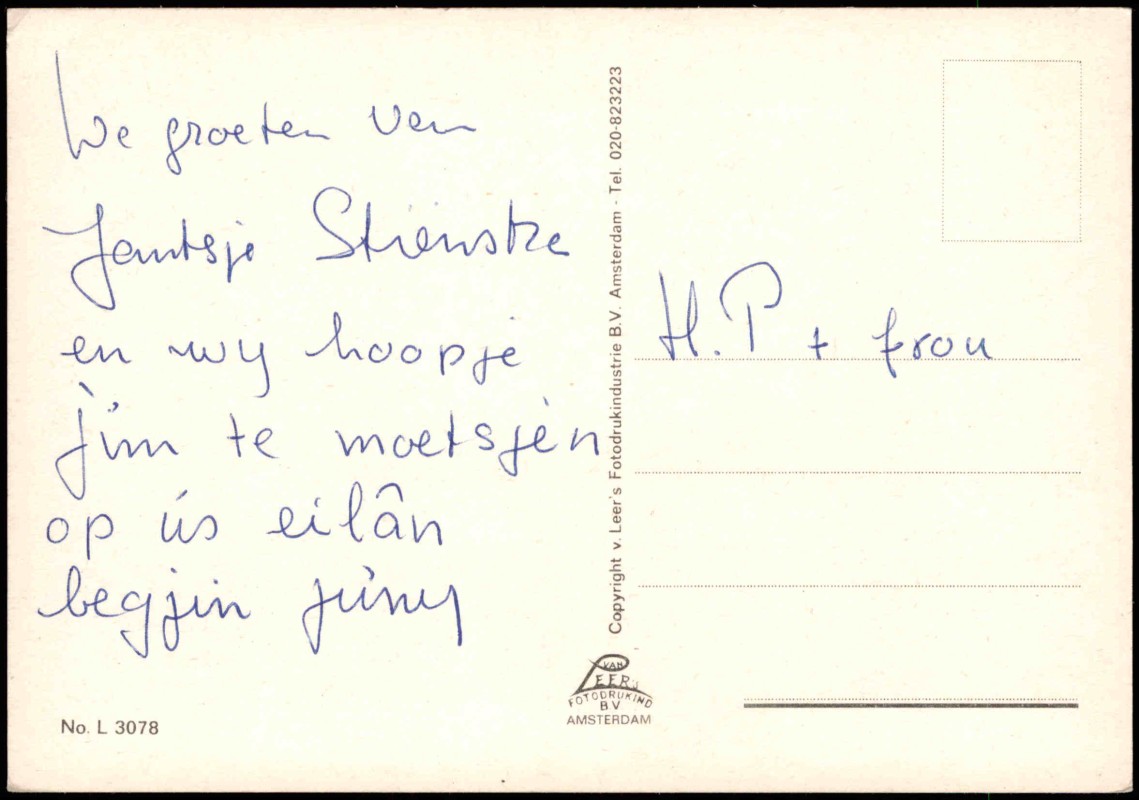 We groeten van
Jantsje Stienstra
en wy hoopje
jim te moetsjen
op ús eilân
begjin júny
No. L 3078
Copyright v. Leer's Fotodrukindustrie B.V. Amsterdam - Tel. 020-823223
VAN
LEER'S
FOTODRUKIND
BV
AMSTERDAM
H.P + frou